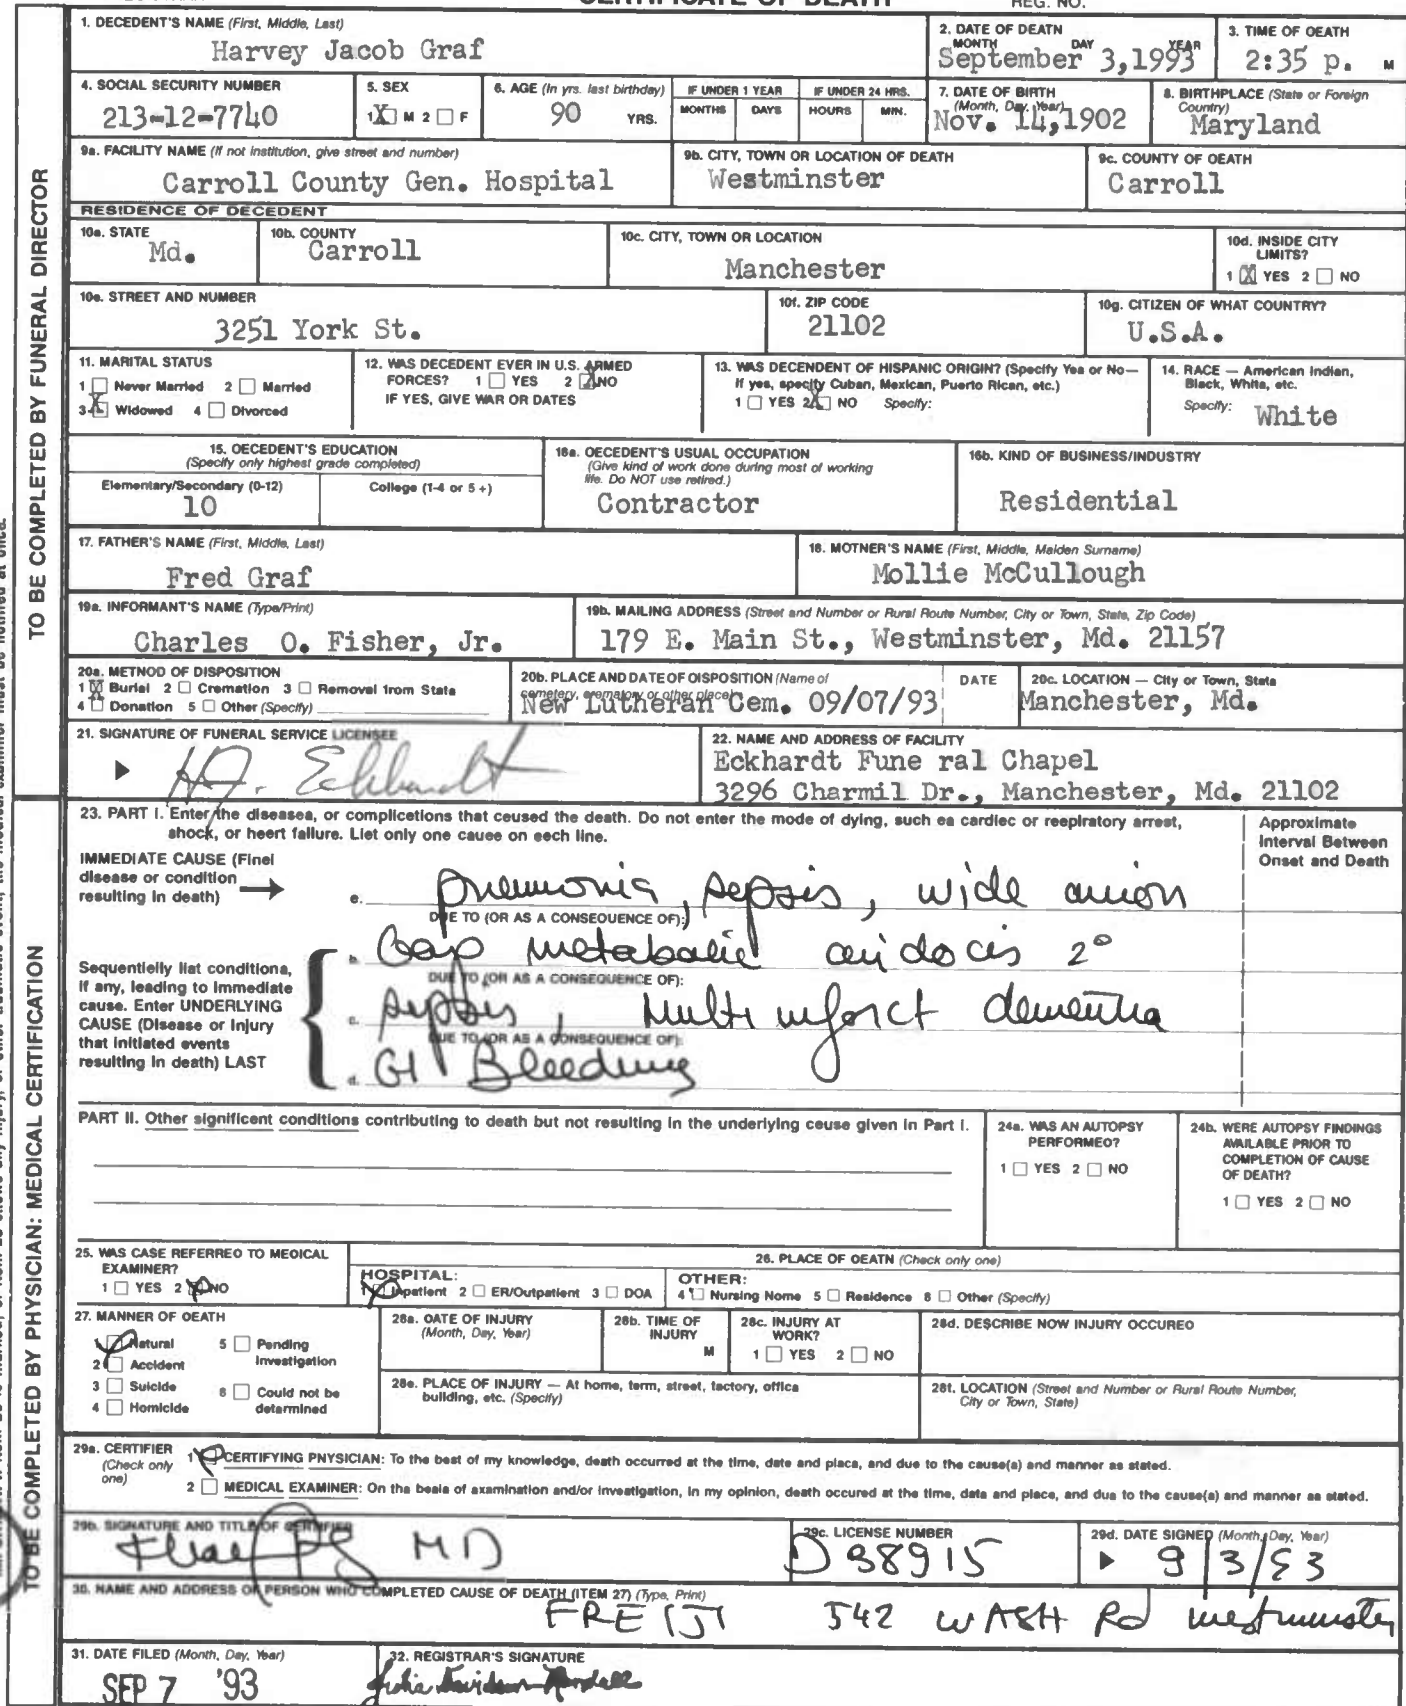 CERTIFICATE OF DEATH REG. NO.
1. DECEDENT'S NAME (First, Middle, Last)
Harvey Jacob Graf
2. DATE OF DEATH
MONTH DAY YEAR
September 3,1993
3. TIME OF OEATH
2:35 p. M
4. SOCIAL SECURITY NUMBER
213-12-7740
5. SEX
1 X M 2 F
6. AGE (In yrs. last birthday)
90 YRS.
IF UNDER 1 YEAR
MONTHS DAYS
IF UNDER 24 HRS.
HOURS MIN.
7. DATE OF BIRTH
(Month, Day, Year)
Nov. 14,1902
8. BIRTHPLACE (State or Foreign
Country)
Maryland
9a. FACILITY NAME (If not institution, give street and number)
Carroll County Gen. Hospital
9b. CITY, TOWN OR LOCATION OF DEATH
Westminster
9c. COUNTY OF OEATH
Carroll
RESIDENCE OF DECEDENT
10a. STATE
Md.
10b. COUNTY
Carroll
10c. CITY, TOWN OR LOCATION
Manchester
10d. INSIDE CITY
LIMITS?
1 X YES 2 NO
10e. STREET AND NUMBER
3251 York St.
10f. ZIP CODE
21102
10g. CITIZEN OF WHAT COUNTRY?
U.S.A.
11. MARITAL STATUS
1 Never Married 2 Married
3 X Widowed 4 Divorced
12. WAS DECEDENT EVER IN U.S. ARMED
FORCES? 1 YES 2 X NO
IF YES, GIVE WAR OR DATES
13. WAS DECENDENT OF HISPANIC ORIGIN? (Specify Yes or No—
If yes, specify Cuban, Mexican, Puerto Rican, etc.)
1 YES 2 X NO Specify:
14. RACE — American Indian,
Black, White, etc.
Specify: White
15. OECEDENT'S EDUCATION
(Specify only highest grade completed)
Elementary/Secondary (0-12) College (1-4 or 5+)
10
16a. OECEDENT'S USUAL OCCUPATION
(Give kind of work done during most of working
life. Do NOT use retired.)
Contractor
16b. KIND OF BUSINESS/INDUSTRY
Residential
17. FATHER'S NAME (First, Middle, Last)
Fred Graf
18. MOTNER'S NAME (First, Middle, Maiden Surname)
Mollie McCullough
19a. INFORMANT'S NAME (Type/Print)
Charles O. Fisher, Jr.
19b. MAILING ADDRESS (Street and Number or Rural Route Number, City or Town, State, Zip Code)
179 E. Main St., Westminster, Md. 21157
20a. METNOD OF DISPOSITION
1 X Burial 2 Cremation 3 Removal from State
4 Donation 5 Other (Specify)
20b. PLACE AND DATE OF OISPOSITION (Name of
cemetery, crematory or other place)
New Lutheran Cem. 09/07/93
DATE
20c. LOCATION — City or Town, State
Manchester, Md.
21. SIGNATURE OF FUNERAL SERVICE LICENSEE
Eckhardt
22. NAME AND ADDRESS OF FACILITY
Eckhardt Fune ral Chapel
3296 Charmil Dr., Manchester, Md. 21102
TO BE COMPLETED BY FUNERAL DIRECTOR
23. PART I. Enter the diseasea, or complicetions that ceused the death. Do not enter the mode of dying, such ea cardiec or reepiratory arrest,
shock, or heert failure. Liet only one cauee on eech line.
Approximate
Interval Between
Onset and Death
IMMEDIATE CAUSE (Finel
disease or condition
resulting in death)
e. pneumonia, sepsis, wide anion
DUE TO (OR AS A CONSEQUENCE OF):
b. Gap metabolic acidocis 2°
DUE TO (OR AS A CONSEQUENCE OF):
Sequentielly liat conditiona,
if any, leading to immediate
cause. Enter UNDERLYING
CAUSE (Disease or injury
that initiated events
resulting in death) LAST
c. sepsis, Multi infarct dementia
DUE TO (OR AS A CONSEQUENCE OF):
d. GI Bleeding
PART II. Other significent conditions contributing to death but not resulting in the underlying ceuse given in Part I.
24a. WAS AN AUTOPSY
PERFORMEO?
1 YES 2 NO
24b. WERE AUTOPSY FINDINGS
AVAILABLE PRIOR TO
COMPLETION OF CAUSE
OF DEATH?
1 YES 2 NO
25. WAS CASE REFERRED TO MEOICAL
EXAMINER?
1 YES 2 NO
26. PLACE OF OEATN (Check only one)
HOSPITAL:
1 Inpatient 2 ER/Outpatient 3 DOA
OTHER:
4 Nursing Nome 5 Residence 6 Other (Specify)
27. MANNER OF OEATH
1 Natural 5 Pending
2 Accident Investigation
3 Suicide 6 Could not be
4 Homicide determined
28a. OATE OF INJURY
(Month, Day, Year)
28b. TIME OF
INJURY
M
28c. INJURY AT
WORK?
1 YES 2 NO
28d. DESCRIBE NOW INJURY OCCUREO
28e. PLACE OF INJURY — At home, term, street, tactory, offica
building, etc. (Specify)
28f. LOCATION (Street and Number or Rural Route Number,
City or Town, State)
29a. CERTIFIER
(Check only
one)
1 CERTIFYING PNYSICIAN: To the best of my knowledge, death occurred at the time, date and placa, and due to the cause(a) and manner as stated.
2 MEDICAL EXAMINER: On the beaia of axamination and/or investigation, in my opinion, death occured at the time, data and place, and dua to the cause(a) and manner as stated.
29b. SIGNATURE AND TITLE OF CERTIFIER
MD
29c. LICENSE NUMBER
D38915
29d. DATE SIGNED (Month, Day, Year)
9/3/93
30. NAME AND ADDRESS OF PERSON WHO COMPLETED CAUSE OF DEATH (ITEM 27) (Type, Print)
FREIJI 542 WASH Rd Westminster
31. DATE FILED (Month, Day, Year)
SEP 7 '93
32. REGISTRAR'S SIGNATURE
TO BE COMPLETED BY PHYSICIAN: MEDICAL CERTIFICATION